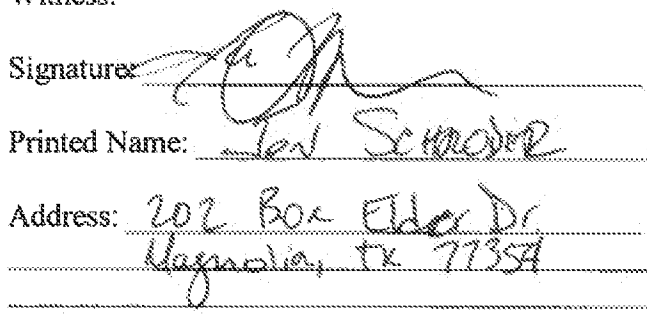 Witness:
Signature:
Printed Name: Jon SCHRODER
Address: 202 Box Elder Dr.
Magnolia, TX 77354